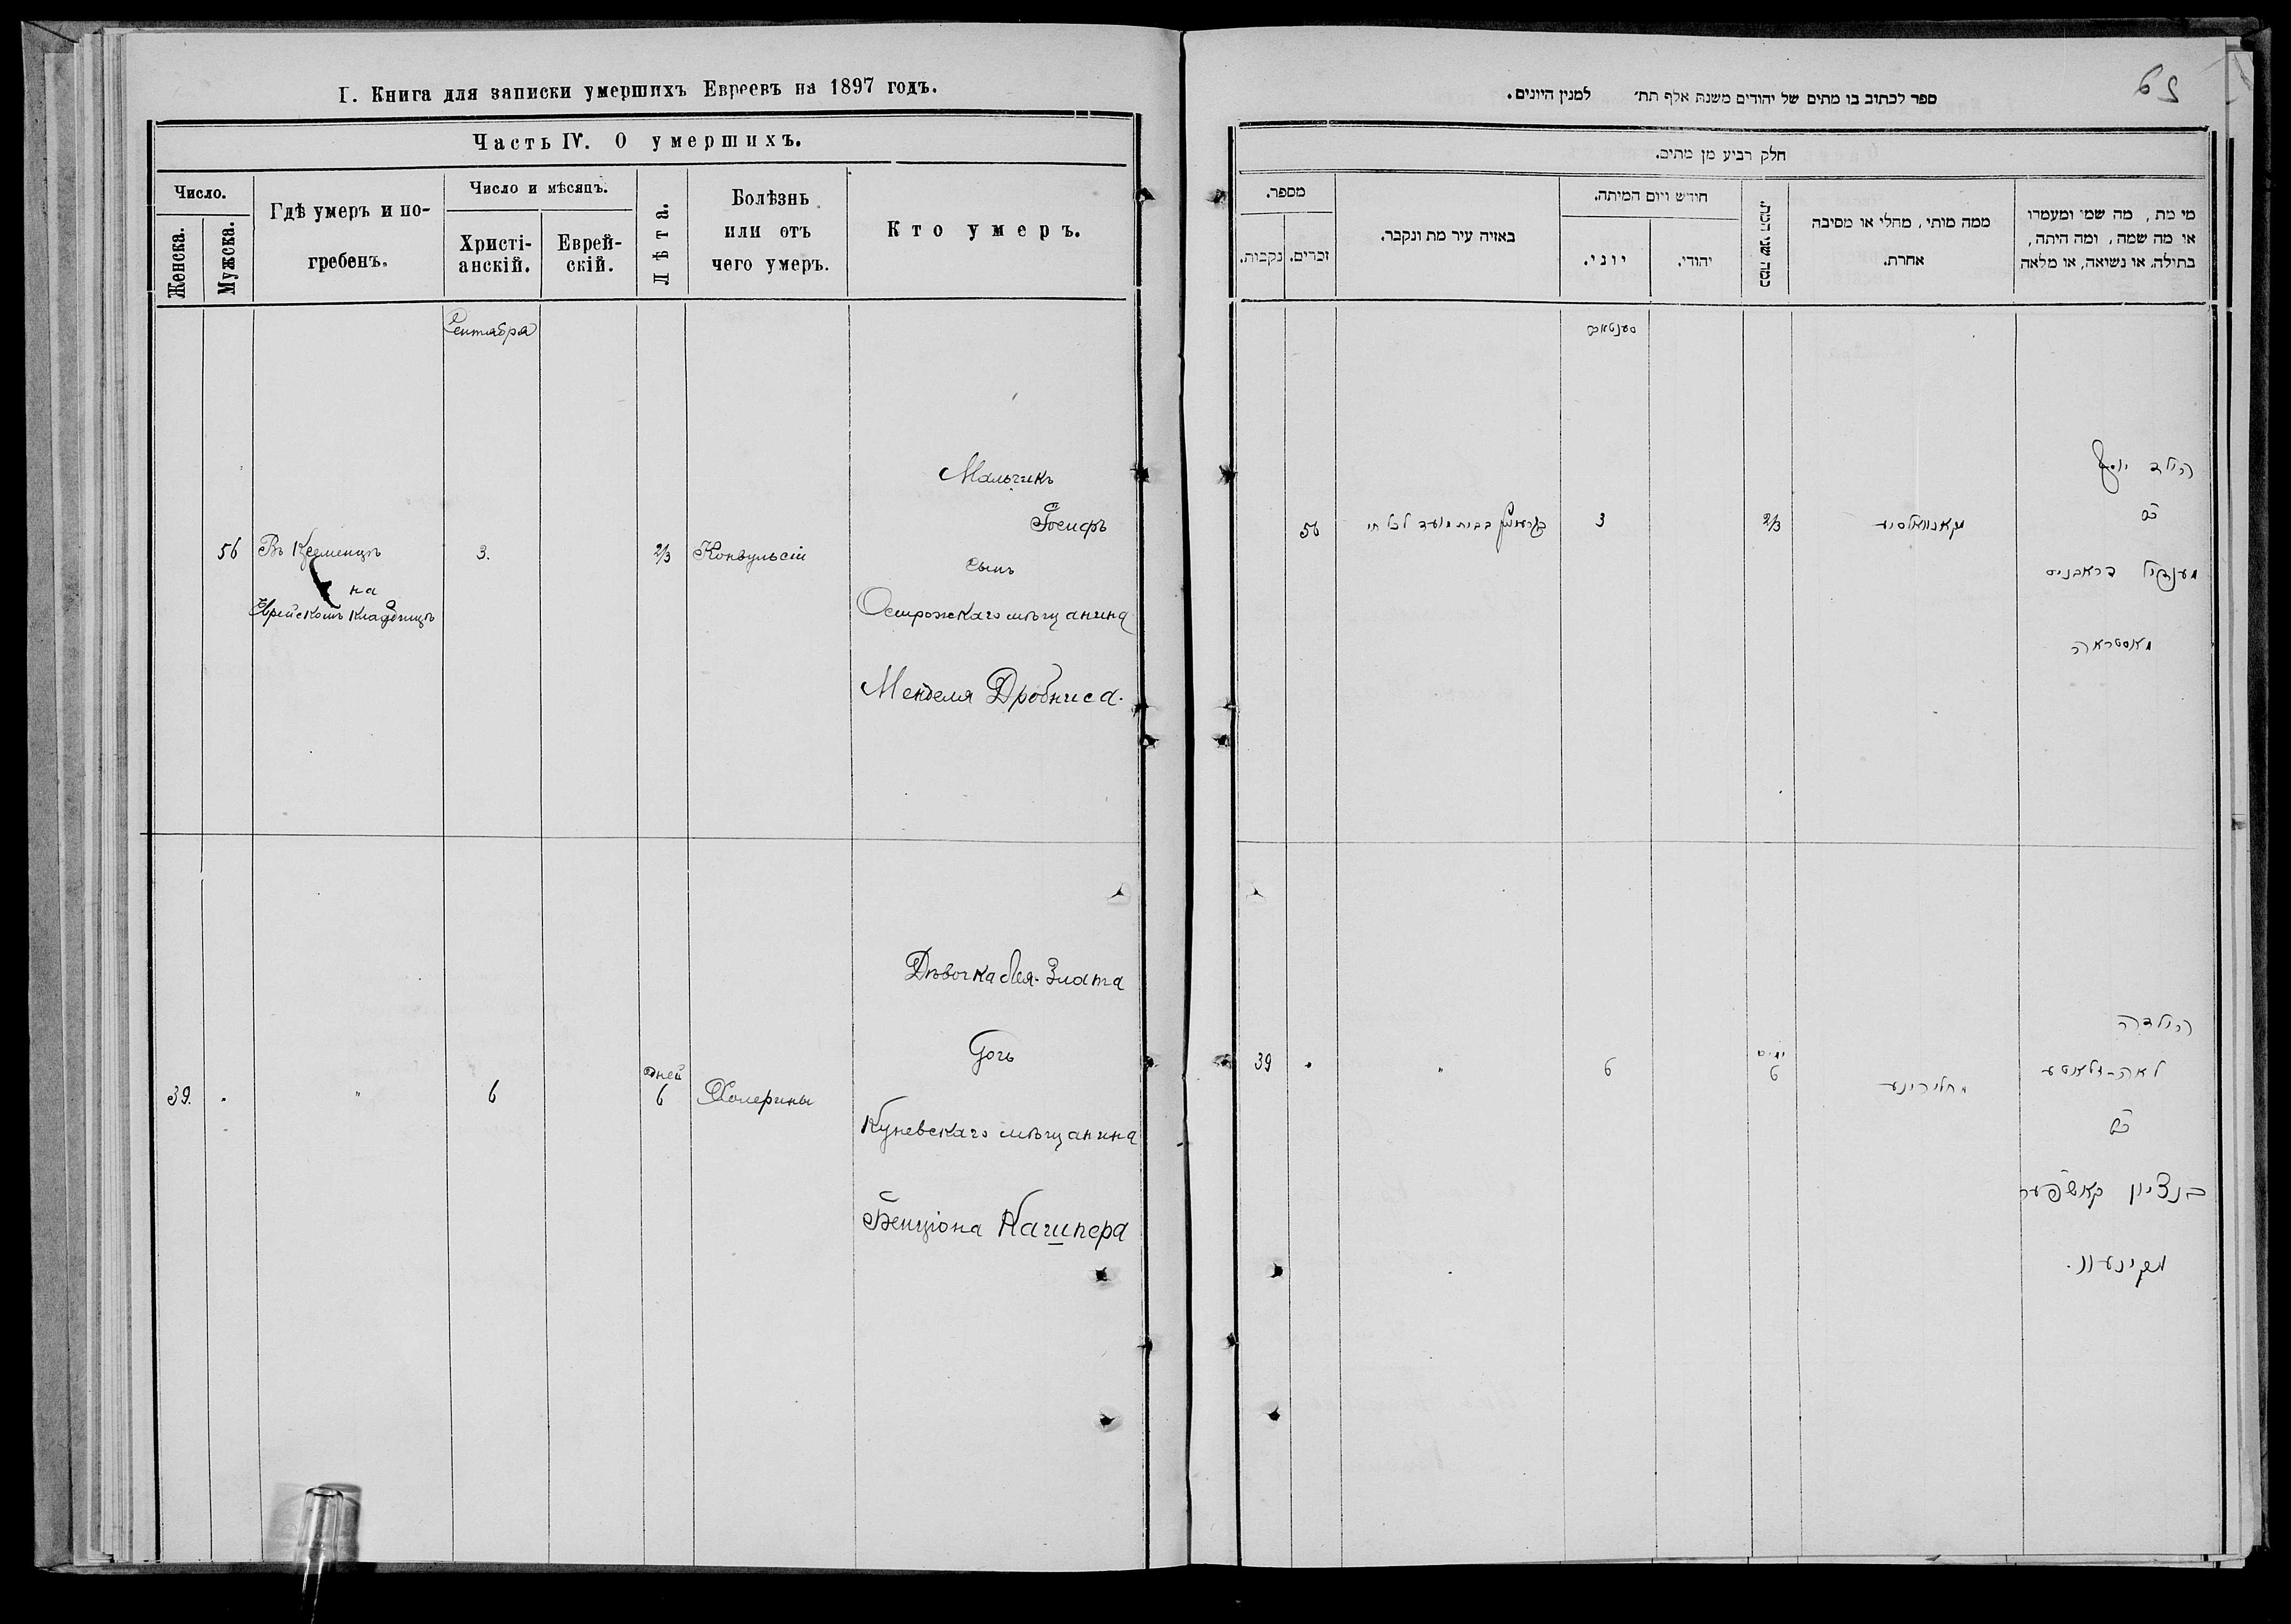 I. Книга для записки умершихъ Евреевъ на 1897 годъ.
Часть IV. О умершихъ.
Число.
Женска.
Мужска.
Гдѣ умеръ и по-
гребенъ.
Число и мѣсяцъ.
Христі-
анскій.
Еврей-
скій.
Лѣта.
Болѣзнь
или отъ
чего умеръ.
Кто умеръ.
Сентября
56
Въ Кременцѣ
на
Еврейскомъ кладбищѣ
3.
2/3
Конвульсіи
Мальчикъ
Іосифъ
сынъ
Острожскаго мѣщанина
Менделя Дробниса.
39.
"
6
дней
6
Холерины
Дѣвочка Лея-Злата
дочь
Куневскаго мѣщанина
Бенціона Кашпера
59
ספר לכתוב בו מתים של יהודים משנת אלף תת׳ למנין היונים.
חלק רביע מן מתים.
מספר.
נקבות.
זכרים.
באזיה עיר מת ונקבר.
חודש ויום המיתה.
יוני.
יהודי.
כמה שני הכות.
ממה מותי, מחלי או מסיבה
אחרת.
מי מת, מה שמו ומעמדו
או מה שמה, ומה היתה,
בתילה, או נשואה, או מלאה
סענטאב
56
בבית מועד לכל חי
3
2/3
מקאנוואלסיע
הילד יוסף
בר
מענדיל דראבניס
מאסטראה
39
"
6
ימים
6
מחלירינע
הילדה
לאה-זלאטע
בר
בנציון קאשפער
מקינעוו.